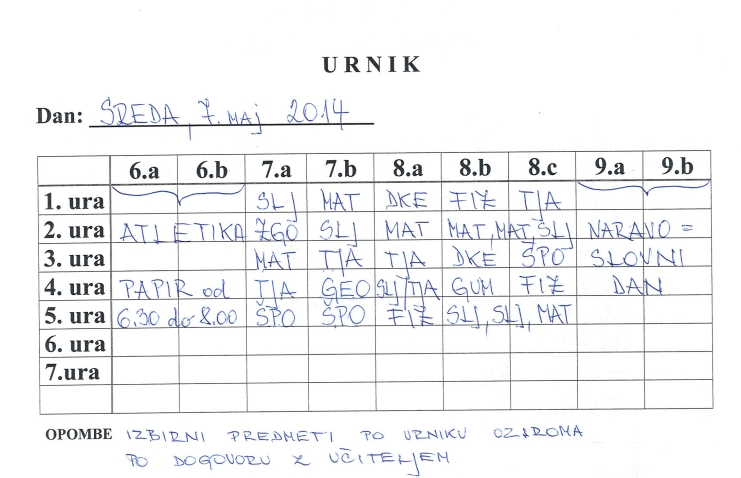 URNIK
Dan: SREDA, 7. MAJ 2014
6.a 6.b 7.a 7.b 8.a 8.b 8.c 9.a 9.b
1. ura SLJ MAT DKE FIZ TJA
2. ura ATLETIKA ZGO SLJ MAT MAT, MAT, SLJ NARAVO=
3. ura MAT TJA TJA DKE ŠPO SLOVNI
4. ura PAPIR od TJA GEO SLJ/TJA GUM FIZ DAN
5. ura 6.30 do 8.00 ŠPO ŠPO FIZ SLJ, SLJ, MAT
6. ura
7.ura
OPOMBE IZBIRNI PREDMETI PO URNIKU OZIROMA
PO DOGOVORU Z UČITELJEM